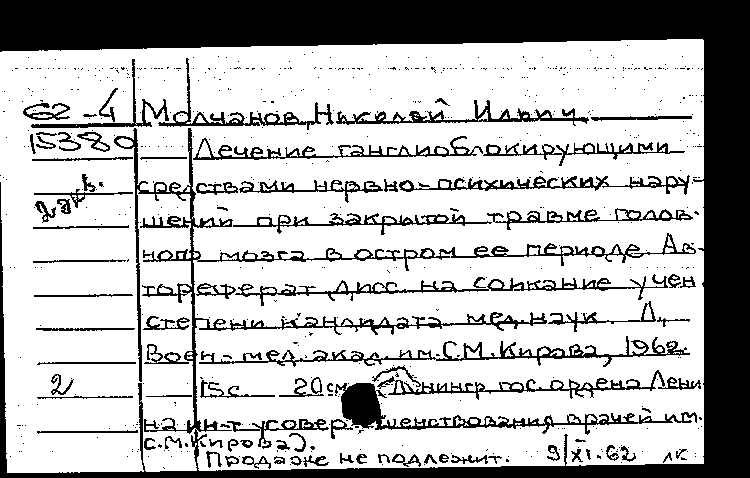 62-4 Молчанов, Николай Ильич.
15380 Лечение ганглиоблокирующими
2 экв. средствами нервно-психических нару-
шений при закрытой травме голов-
ного мозга в остром ее периоде. Ав-
тореферат дисс. на соискание учен.
степени кандидата мед. наук. Л.,
Воен-мед. акад. им. С.М. Кирова, 1962.
2 15 с. 20 см (Ленингр. гос. ордена Лени
на ин-т усовершенствования врачей им.
С.М. Кирова).
Продаже не подлежит. 9/XI.62 лк